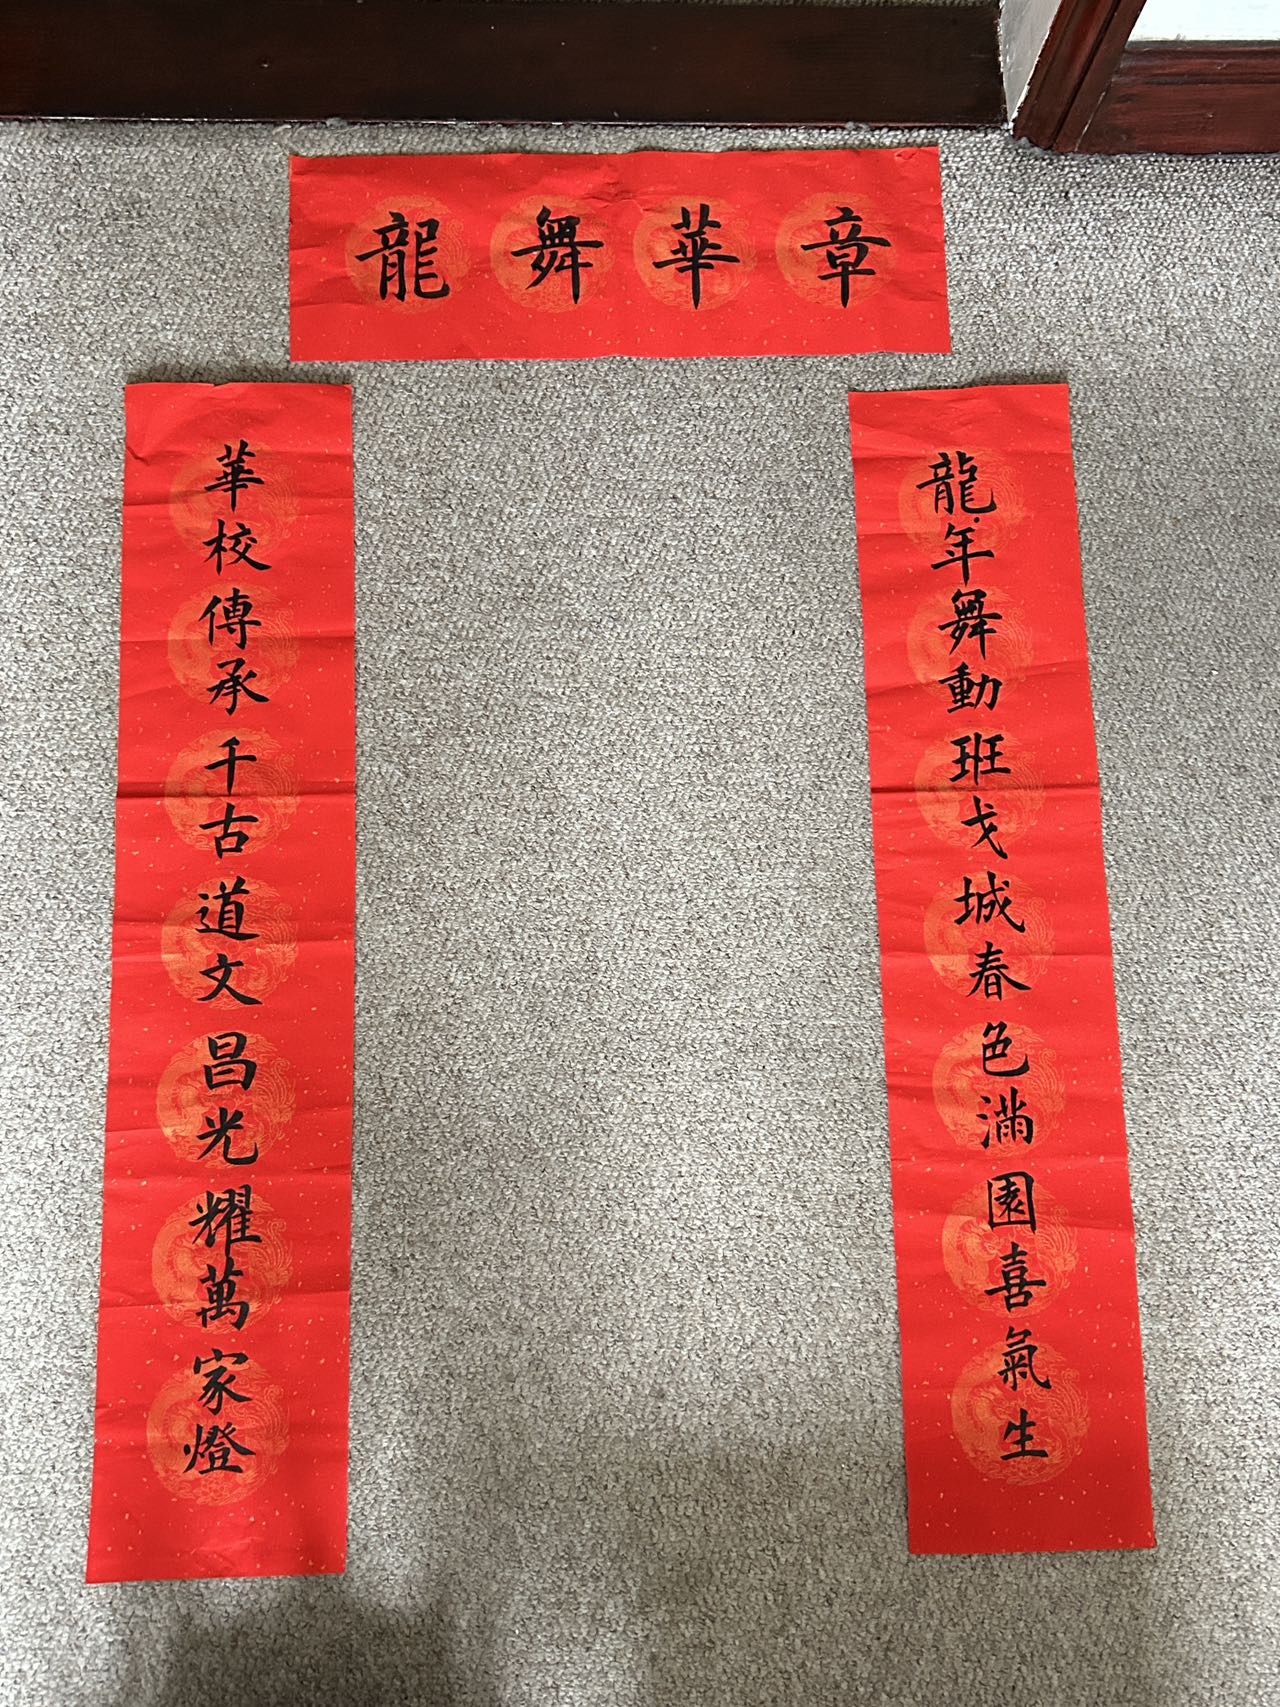 龍舞華章
華校傳承千古道文昌光耀萬家燈
龍年舞動班戈城春色滿園喜氣生